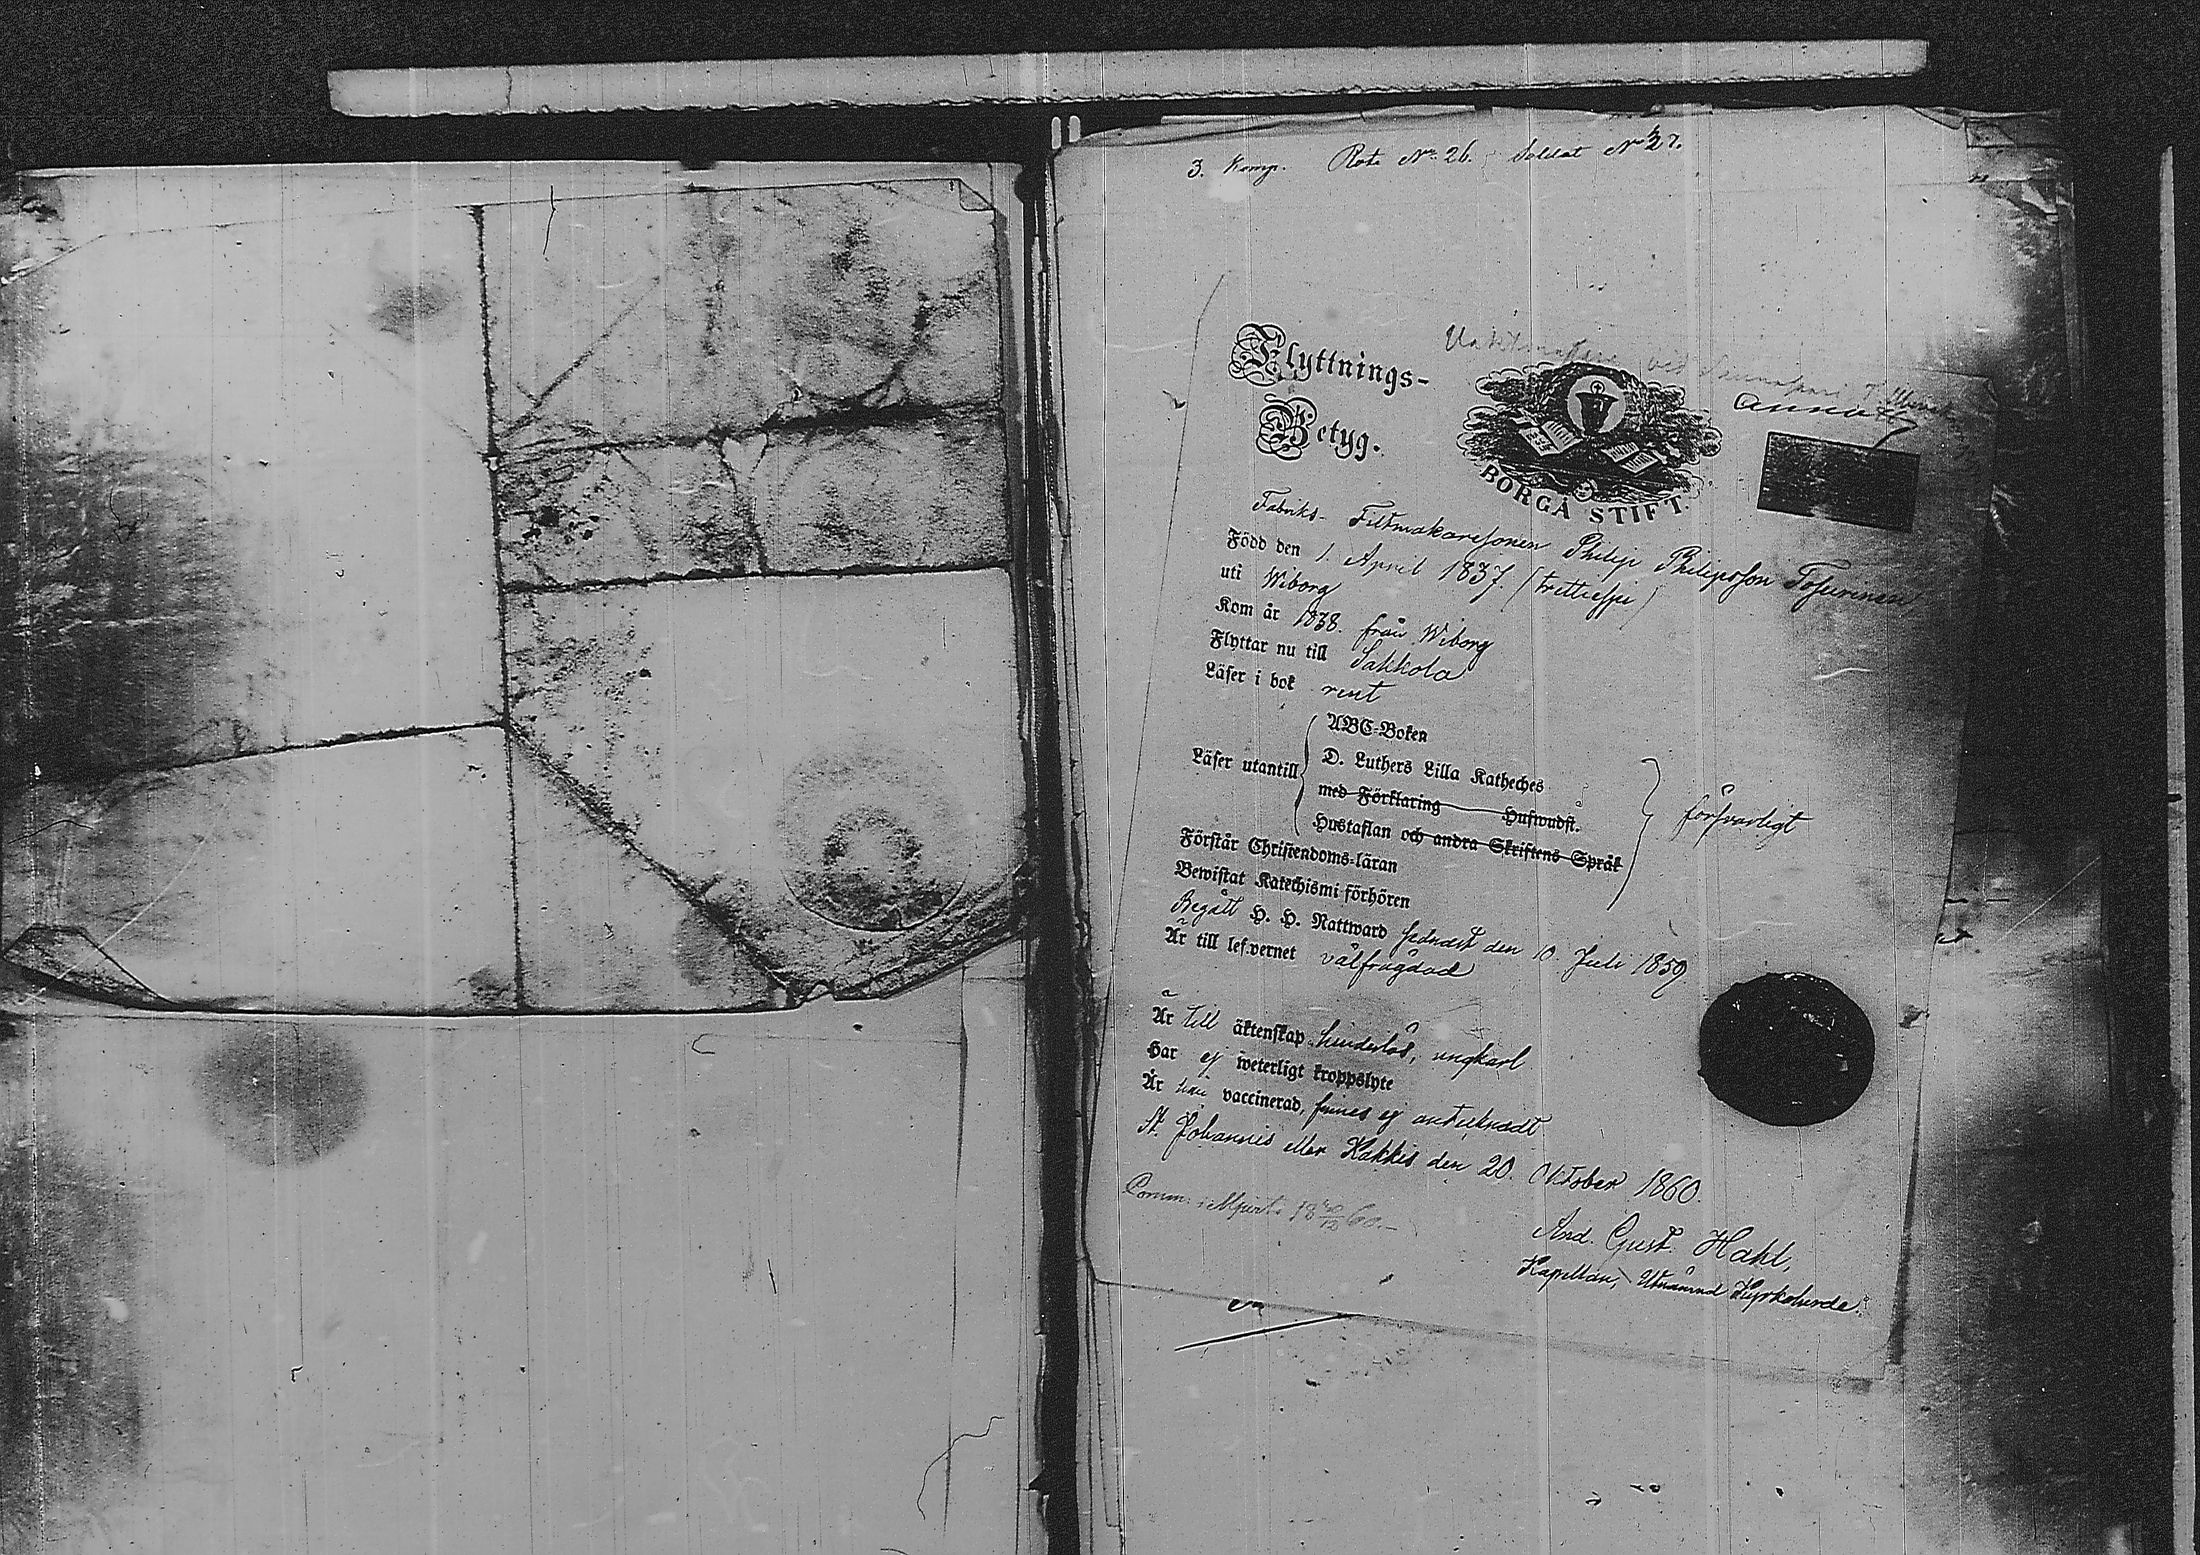 3. Komp. Rote No 26. Soldat No 27.
Flyttnings-
Betyg.
BORGÅ STIFT.
Fabriks- Filtmakaresonen Philip Philipsson
Född den 1. April 1837. (trettiosju)
uti Wiborg
Kom år 1838. från Wiborg
Flyttar nu till Sakkola
Läser i bok rent
ABC-Boken
D. Luthers Lilla Katheches
Läser utantill
med Förklaring Hufwudst.
Hustaflan och andra Skriftens Språk
försvarligt
Förstår Christendoms-läran
Bewistat Katechismi förhören
Begått H. H. Nattward sednast den 10. Juli 1859
Är till lefvernet välfrägdad
Är till äktenskap hinderlös, ungkarl
Har ej weterligt kroppslyte
Är han vaccinerad, finnes ej antecknadt
St. Johannis eller Kakkis den 20. Oktober 1860.
And. Gust. Hahl,
Kapellan, Utnämnd Kyrkoherde.